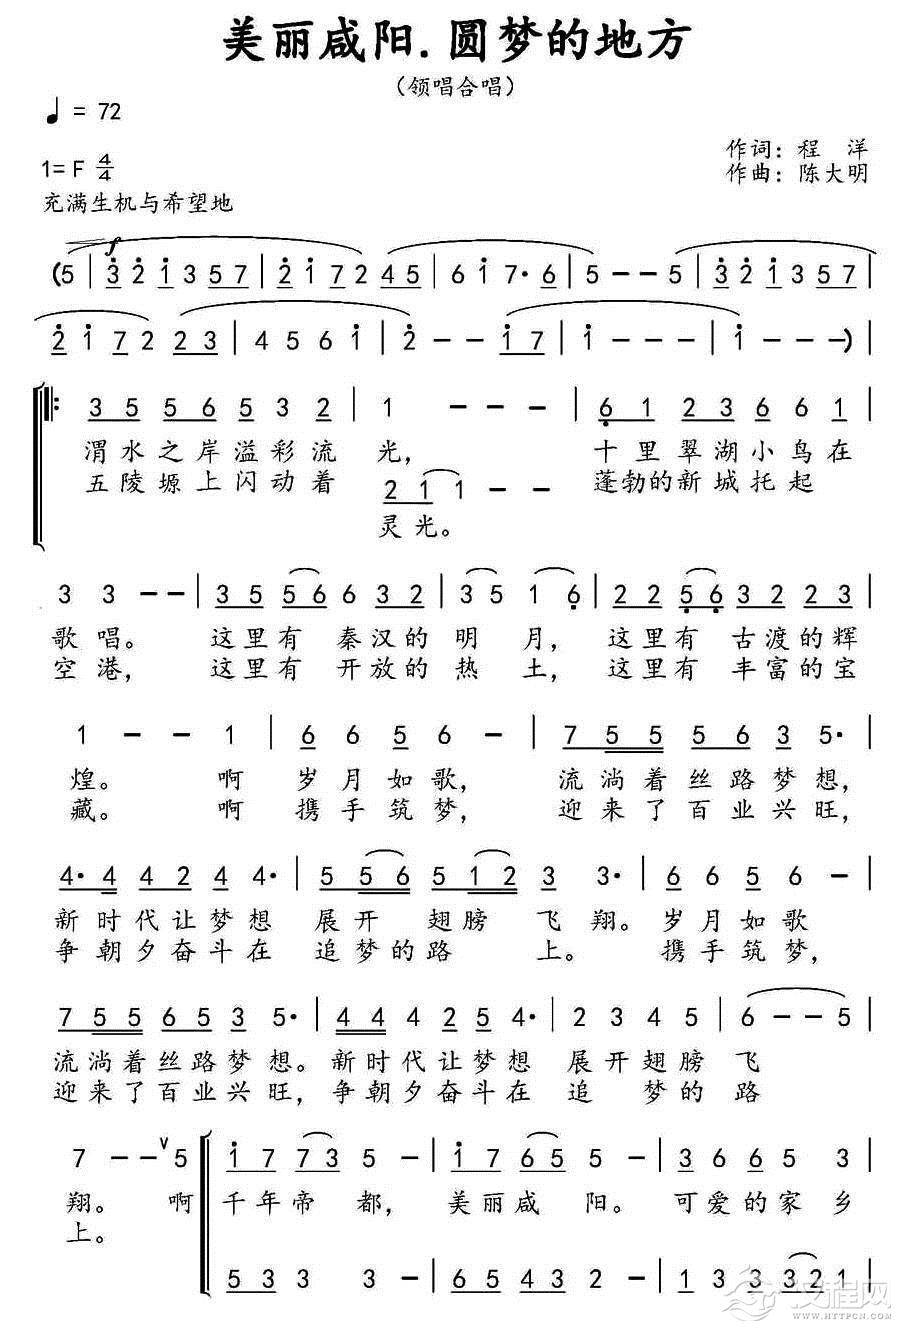 美丽咸阳.圆梦的地方
（领唱合唱）
♩ = 72
作词：程 洋
1= F 4/4
作曲：陈大明
充满生机与希望地
(5 | 3 2 1 3 5 7 | 2 1 7 2 4 5 | 6 1 7· 6 | 5 - - 5 | 3 2 1 3 5 7 |
2 1 7 2 2 3 | 4 5 6 1 | 2 - - 1 7 | 1 - - - | 1 - - -) |
3 5 5 6 5 3 2 | 1 - - - | 6 1 2 3 6 6 1 |
渭水之岸溢彩流 光， 十里翠湖小鸟在
五陵塬上闪动着 蓬勃的新城托起
2 1 1 - -
灵光。
3 3 - - | 3 5 5 6 6 3 2 | 3 5 1 6 | 2 2 5 6 3 2 2 3 |
歌唱。 这里有 秦汉的 明 月， 这里有 古渡的辉
空港， 这里有 开放的 热 土， 这里有 丰富的宝
1 - - 1 | 6 6 5 6 - | 7 5 5 5 6 3 5· |
煌。 啊 岁月如歌， 流淌着丝路梦想，
藏。 啊 携手筑梦， 迎来了百业兴旺，
4· 4 4 2 4 4· | 5 5 6 5 1 2 3 3· | 6 6 5 6 - |
新时代让梦想 展开 翅膀 飞 翔。 岁月如歌
争朝夕奋斗在 追梦的路 上。 携手筑梦，
7 5 5 6 5 3 5· | 4 4 4 2 5 4· | 2 3 4 5 | 6 - - 5 |
流淌着丝路梦想。 新时代让梦想 展开翅膀 飞
迎来了百业兴旺， 争朝夕奋斗在 追 梦的 路
7 - - 5 | 1 7 7 3 5 - | 1 7 6 5 5 - | 3 6 6 5 5 3 |
翔。 啊 千年帝 都， 美丽咸 阳。 可爱的家 乡
上。
5 3 3 3 3 - | 6 5 4 3 2 - | 1 3 3 3 2 1 |
文程网
HTTPCN.COM